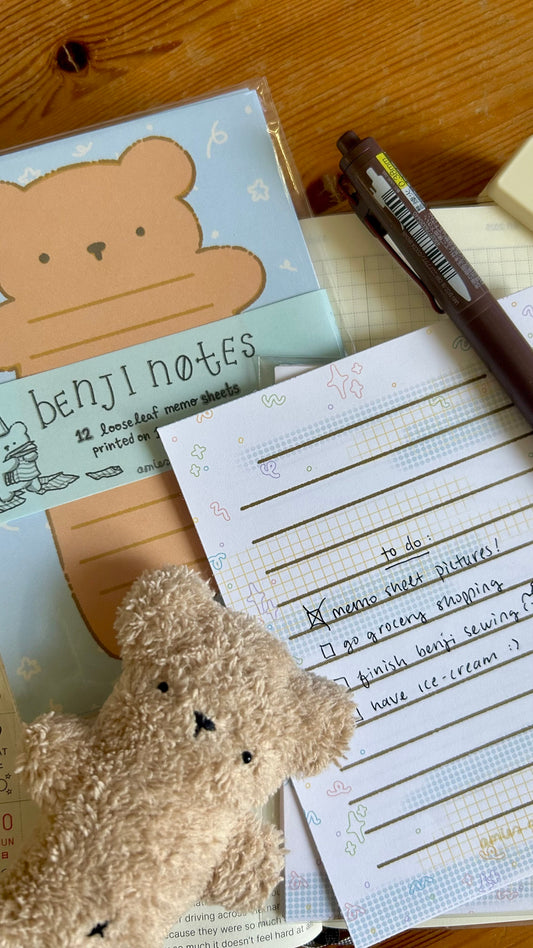 benji notes
12 loose leaf memo sheets
printed on
0.48mm
to do:
memo sheet pictures!
go grocery shopping
finish benji sewing
have ice-cream :)
SAT
SUN
driving across the
because they were so much
so much it doesn't feel hard at